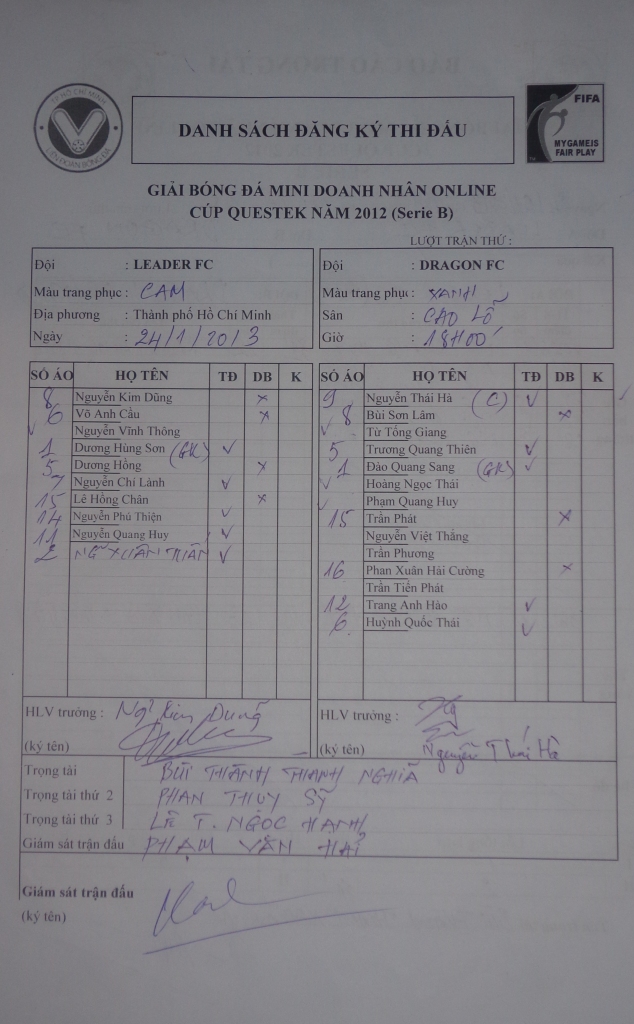 TP HỒ CHÍ MINH
LIÊN ĐOÀN BÓNG ĐÁ
DANH SÁCH ĐĂNG KÝ THI ĐẤU
FIFA
MY GAME IS
FAIR PLAY
GIẢI BÓNG ĐÁ MINI DOANH NHÂN ONLINE
CÚP QUESTEK NĂM 2012 (Serie B)
LƯỢT TRẬN THỨ :
Đội : LEADER FC
Màu trang phục : CAM
Địa phương : Thành phố Hồ Chí Minh
Ngày : 24/1/2013
Đội : DRAGON FC
Màu trang phục : XANH
Sân : CAO LỖ
Giờ : 18H00'
SỐ ÁO HỌ TÊN TĐ DB K
8 Nguyễn Kim Dũng x
6 Võ Anh Cầu x
Nguyễn Vĩnh Thông
1 Dương Hùng Sơn (GK) ✓
5 Dương Hồng x
7 Nguyễn Chí Lãnh ✓
15 Lê Hồng Chân x
14 Nguyễn Phú Thiện ✓
11 Nguyễn Quang Huy ✓
2 NG XUÂN THÂN ✓
SỐ ÁO HỌ TÊN TĐ DB K
9 Nguyễn Thái Hà (C) ✓
8 Bùi Sơn Lâm x
Từ Tống Giang
5 Trương Quang Thiên ✓
1 Đào Quang Sang (GK) ✓
Hoàng Ngọc Thái
Phạm Quang Huy
15 Trần Phát x
Nguyễn Việt Thắng
Trần Phương
16 Phan Xuân Hải Cường x
Trần Tiến Phát
12 Trang Anh Hào ✓
6 Huỳnh Quốc Thái ✓
HLV trưởng : Ng Kim Dũng
(ký tên)
HLV trưởng :
(ký tên) Nguyễn Thái Hà
Trọng tài BÙI THÀNH THANH NGHĨA
Trọng tài thứ 2 PHAN THUY SỸ
Trọng tài thứ 3 LÊ T. NGỌC HẠNH
Giám sát trận đấu PHẠM VĂN HẢI
Giám sát trận đấu
(ký tên)